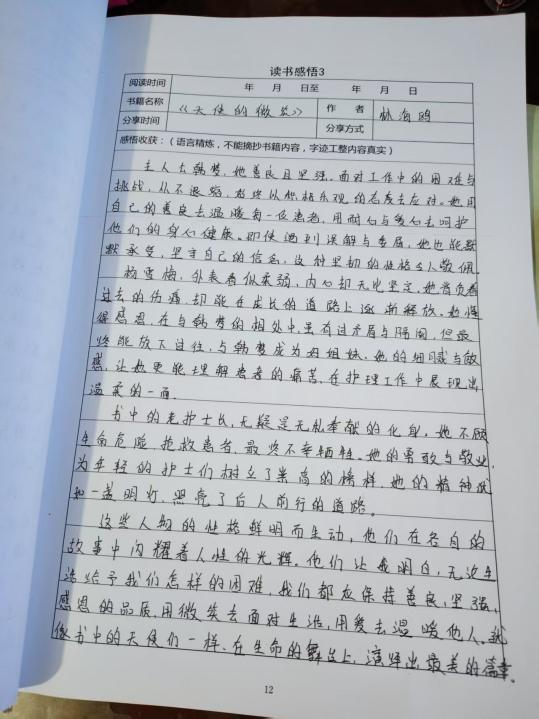 读书感悟3
阅读时间 年 月 日至 年 月 日
书籍名称 《天使的微笑》 作者 林海鸥
分享时间 分享方式
感悟收获:(语言精炼,不能摘抄书籍内容,字迹工整内容真实)
主人公韩梦,她善良且坚强。面对工作中的困难与
挑战,从不退缩,始终以积极乐观的态度去应对。她用
自己的善良去温暖每一位患者,用耐心与爱心去呵护
他们的身心健康。即使遇到误解与委屈,她也能默
默承受,坚守自己的信念,这种坚韧的性格令人敬佩。
杨雪梅,外表看似柔弱,内心却无比坚定,她背负着
过去的伤痛,却能在成长的道路上逐渐释放。她懂
得感恩,在与韩梦的相处中,虽有过矛盾与隔阂,但最
终能放下过往,与韩梦成为好姐妹,她的细腻与敏
感,让她更能理解患者的痛苦,在护理工作中展现出
温柔的一面。
书中的老护士长,无疑是无私奉献的化身,她不顾
生命危险,抢救患者,最终不幸牺牲。她的勇敢与敬业,
为年轻的护士们树立了崇高的榜样,她的精神犹
如一盏明灯,照亮了后人前行的道路。
这些人物的性格鲜明而生动,他们在各自的
故事中闪耀着人性的光辉。他们让我明白,无论生
活给予我们怎样的困难,我们都应保持善良,坚强,
感恩的品质,用微笑去面对生活,用爱去温暖他人。就
像书中的天使们一样,在生命的舞台上,演绎出最美的篇章。
12